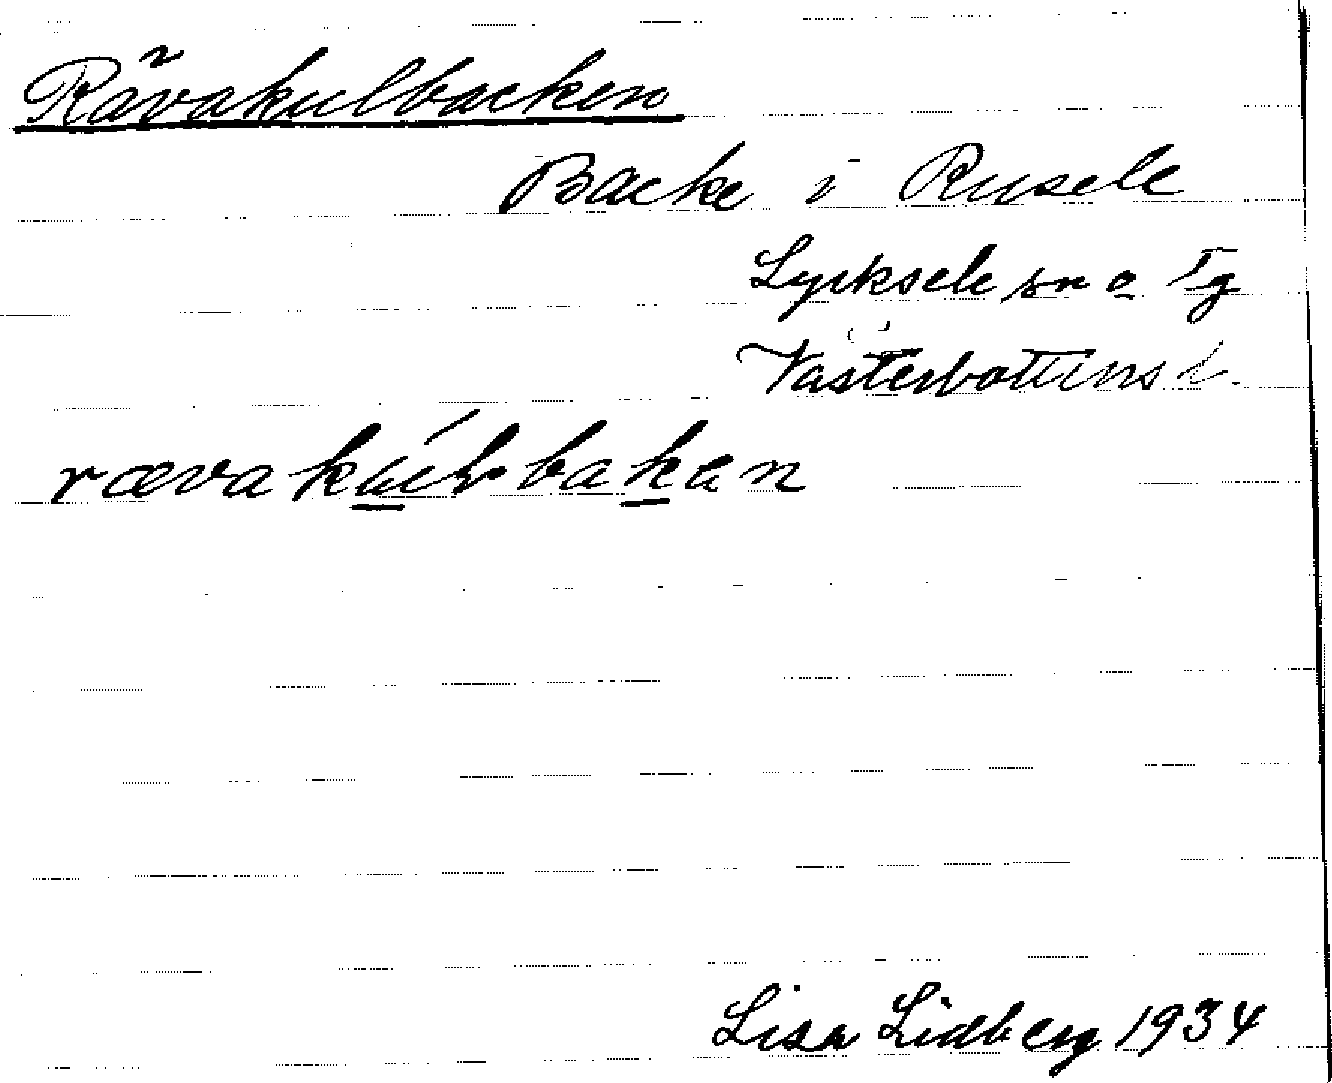 Rävakulbacken
Backe i Rusele
Lycksele sn o tg
Västerbottens l.
rævakúlbakan
Lisa Lidberg 1934